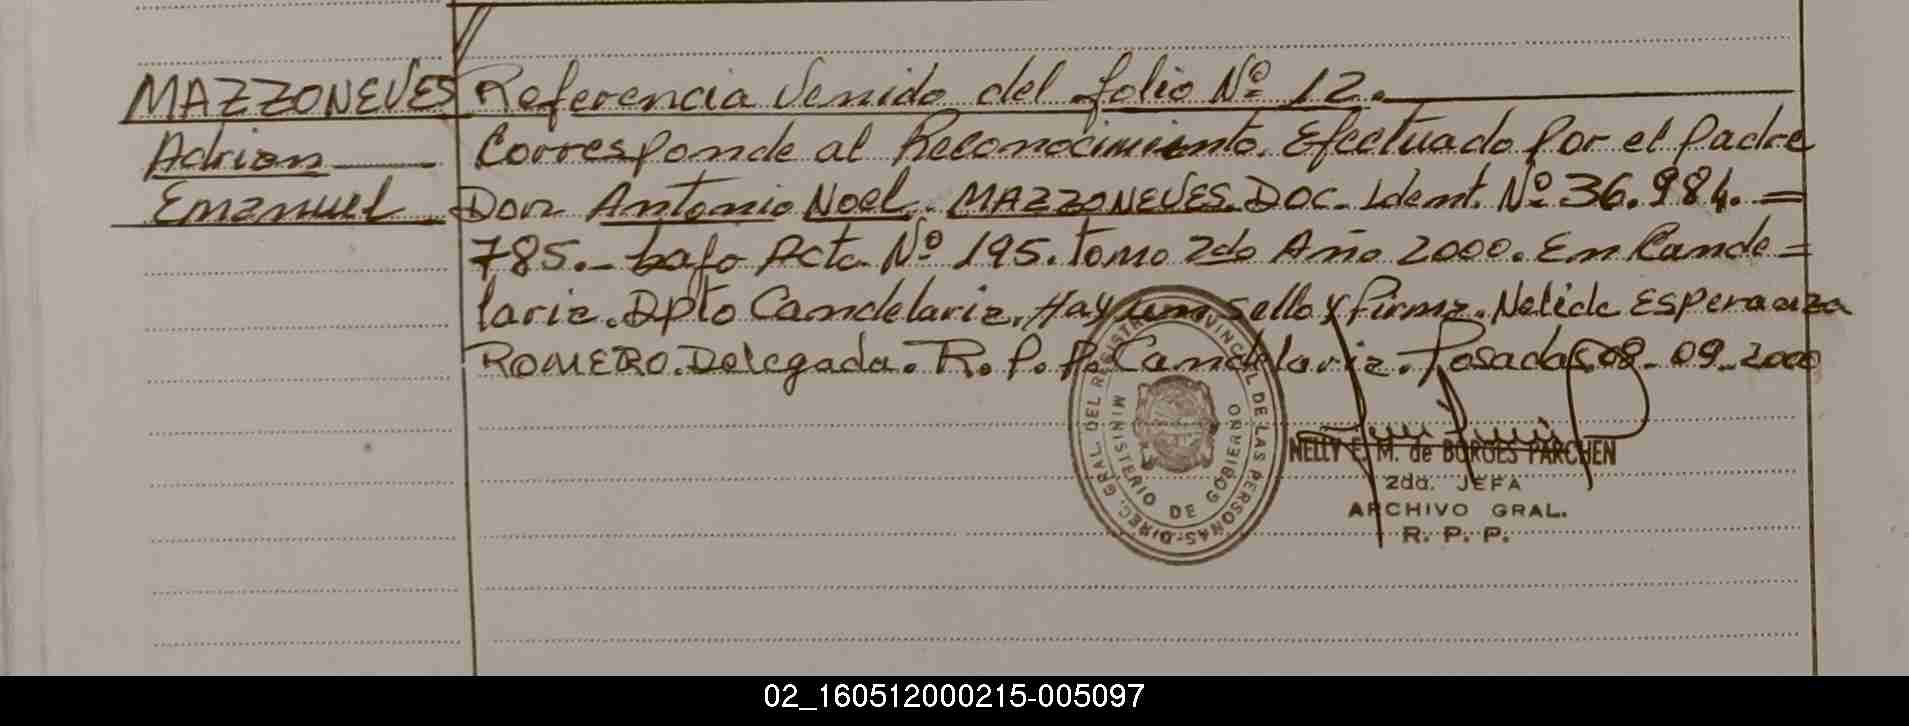 MAZZONEVES Referencia Venido del folio Nº 12.
Adrian Corresponde al Reconocimiento. Efectuado por el padre
Emanuel Don Antonio Noel. MAZZONEVES. DOC. Ident. Nº 36.984.=
785.- bajo Acta Nº 195. tomo 2do Año 2000. En Cande=
laria. Dpto Candelaria. Hay un sello y firma. Nelida Esperanza
ROMERO. Delegada. R. P. P. Candelaria. Posadas 08-09-2000
DIREC. GRAL. DEL REGISTRO PROVINCIAL DE LAS PERSONAS
MINISTERIO DE GOBIERNO
NELLY E. M. de BORGES PARCHEN
2da. JEFA
ARCHIVO GRAL.
R. P. P.
02_160512000215-005097